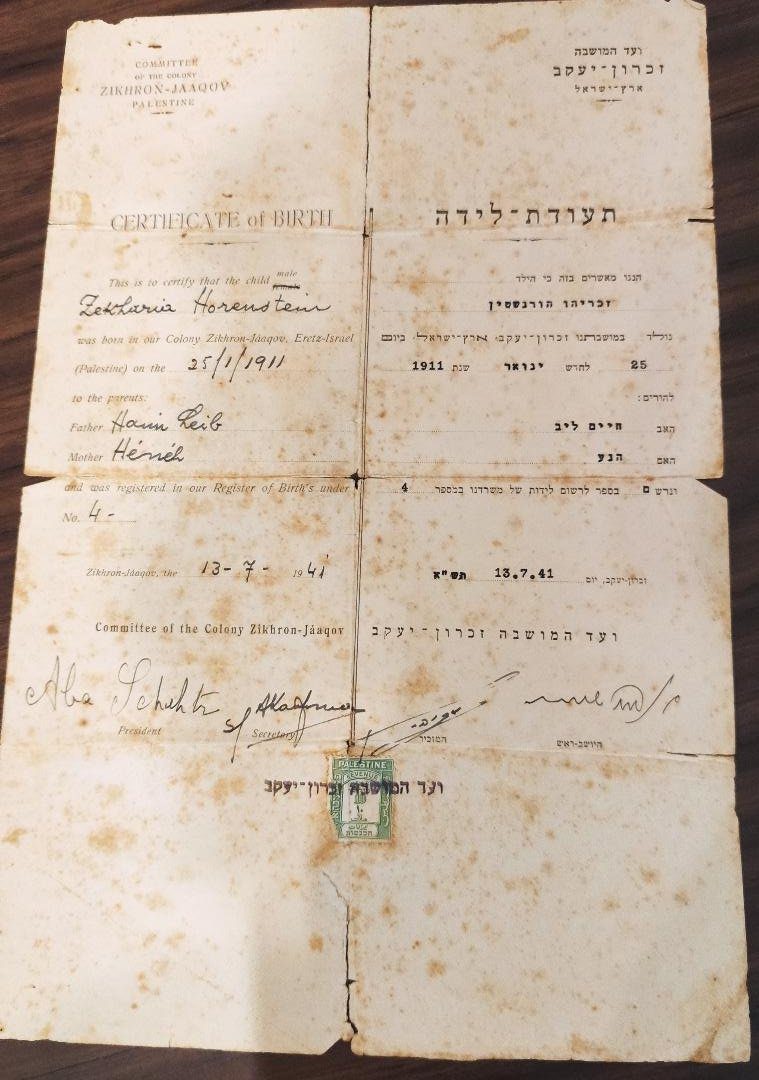 COMMITTEE
OF THE COLONY
ZIKHRON-JAAQOV
PALESTINE
CERTIFICATE of BIRTH
This is to certify that the child male
female
Zekharia Horenstein
was born in our Colony Zikhron-Jáaqov, Eretz-Israel
(Palestine) on the 25/1/1911
to the parents:
Father Haim Leib
Mother Hénéh
and was registered in our Register of Birth's under
No. 4-
Zikhron-Jáaqov, the 13-7- 1941
Committee of the Colony Zikhron-Jáaqov
Aba Schehtr
President
Secretary
ועד המושבה
זכרון-יעקב
ארץ-ישראל
תעודת-לידה
הננו מאשרים בזה כי הילד
זכריהו הורנשטין
נולד במושבתנו זכרון-יעקב ארץ-ישראל ביום
25 לחדש ינואר שנת 1911
להורים:
האב חיים ליב
האם הנע
ונרשם בספר לרשום לידות של משרדנו במספר 4
זכרון-יעקב, יום 13.7.41 תש"א
ועד המושבה זכרון-יעקב
המזכיר
היושב-ראש
PALESTINE
REVENUE
ועד המושבה זכרון-יעקב